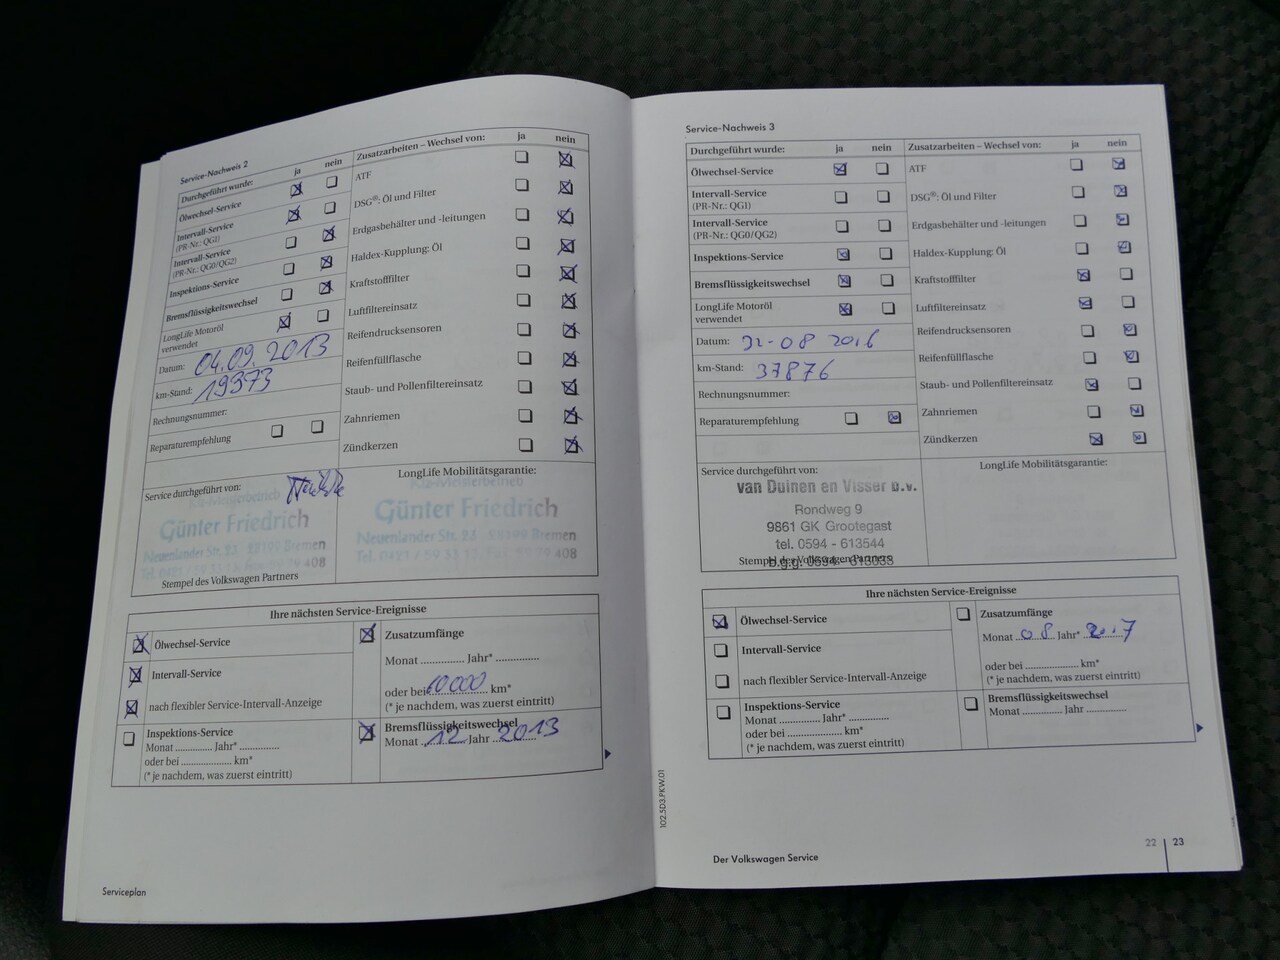 Service-Nachweis 2
Durchgeführt wurde: ja nein
Ölwechsel-Service
Intervall-Service
(PR-Nr.: QG1)
Intervall-Service
(PR-Nr.: QG0/QG2)
Inspektions-Service
Bremsflüssigkeitswechsel
LongLife Motoröl
verwendet
Datum: 04.09.2013
km-Stand: 19373
Rechnungsnummer:
Reparaturempfehlung
Zusatzarbeiten – Wechsel von: ja nein
ATF
DSG®: Öl und Filter
Erdgasbehälter und -leitungen
Haldex-Kupplung: Öl
Kraftstofffilter
Luftfiltereinsatz
Reifendrucksensoren
Reifenfüllflasche
Staub- und Pollenfiltereinsatz
Zahnriemen
Zündkerzen
Service durchgeführt von:
Kfz-Meisterbetrieb
Günter Friedrich
Neuenlander Str. 23 · 28199 Bremen
Stempel des Volkswagen Partners
LongLife Mobilitätsgarantie:
Kfz-Meisterbetrieb
Günter Friedrich
Neuenlander Str. 23 · 28199 Bremen
Ihre nächsten Service-Ereignisse
Ölwechsel-Service
Intervall-Service
nach flexibler Service-Intervall-Anzeige
Inspektions-Service
Monat ............... Jahr* ...............
oder bei ..................... km*
(* je nachdem, was zuerst eintritt)
Zusatzumfänge
Monat ............... Jahr* ...............
oder bei 10000 km*
(* je nachdem, was zuerst eintritt)
Bremsflüssigkeitswechsel
Monat 12 Jahr 2013
Serviceplan
Service-Nachweis 3
Durchgeführt wurde: ja nein
Ölwechsel-Service
Intervall-Service
(PR-Nr.: QG1)
Intervall-Service
(PR-Nr.: QG0/QG2)
Inspektions-Service
Bremsflüssigkeitswechsel
LongLife Motoröl
verwendet
Datum: 31-08 2016
km-Stand: 37876
Rechnungsnummer:
Reparaturempfehlung
Zusatzarbeiten – Wechsel von: ja nein
ATF
DSG®: Öl und Filter
Erdgasbehälter und -leitungen
Haldex-Kupplung: Öl
Kraftstofffilter
Luftfiltereinsatz
Reifendrucksensoren
Reifenfüllflasche
Staub- und Pollenfiltereinsatz
Zahnriemen
Zündkerzen
Service durchgeführt von:
van Duinen en Visser b.v.
Rondweg 9
9861 GK Grootegast
tel. 0594 - 613544
b.g.g. 0594 - 613033
Stempel des Volkswagen Partners
LongLife Mobilitätsgarantie:
Ihre nächsten Service-Ereignisse
Ölwechsel-Service
Intervall-Service
nach flexibler Service-Intervall-Anzeige
Inspektions-Service
Monat ............... Jahr* ...............
oder bei ..................... km*
(* je nachdem, was zuerst eintritt)
Zusatzumfänge
Monat 08 Jahr* 2017
oder bei ..................... km*
(* je nachdem, was zuerst eintritt)
Bremsflüssigkeitswechsel
Monat ............... Jahr ...............
102.5D3.PKW.01
Der Volkswagen Service
22 23